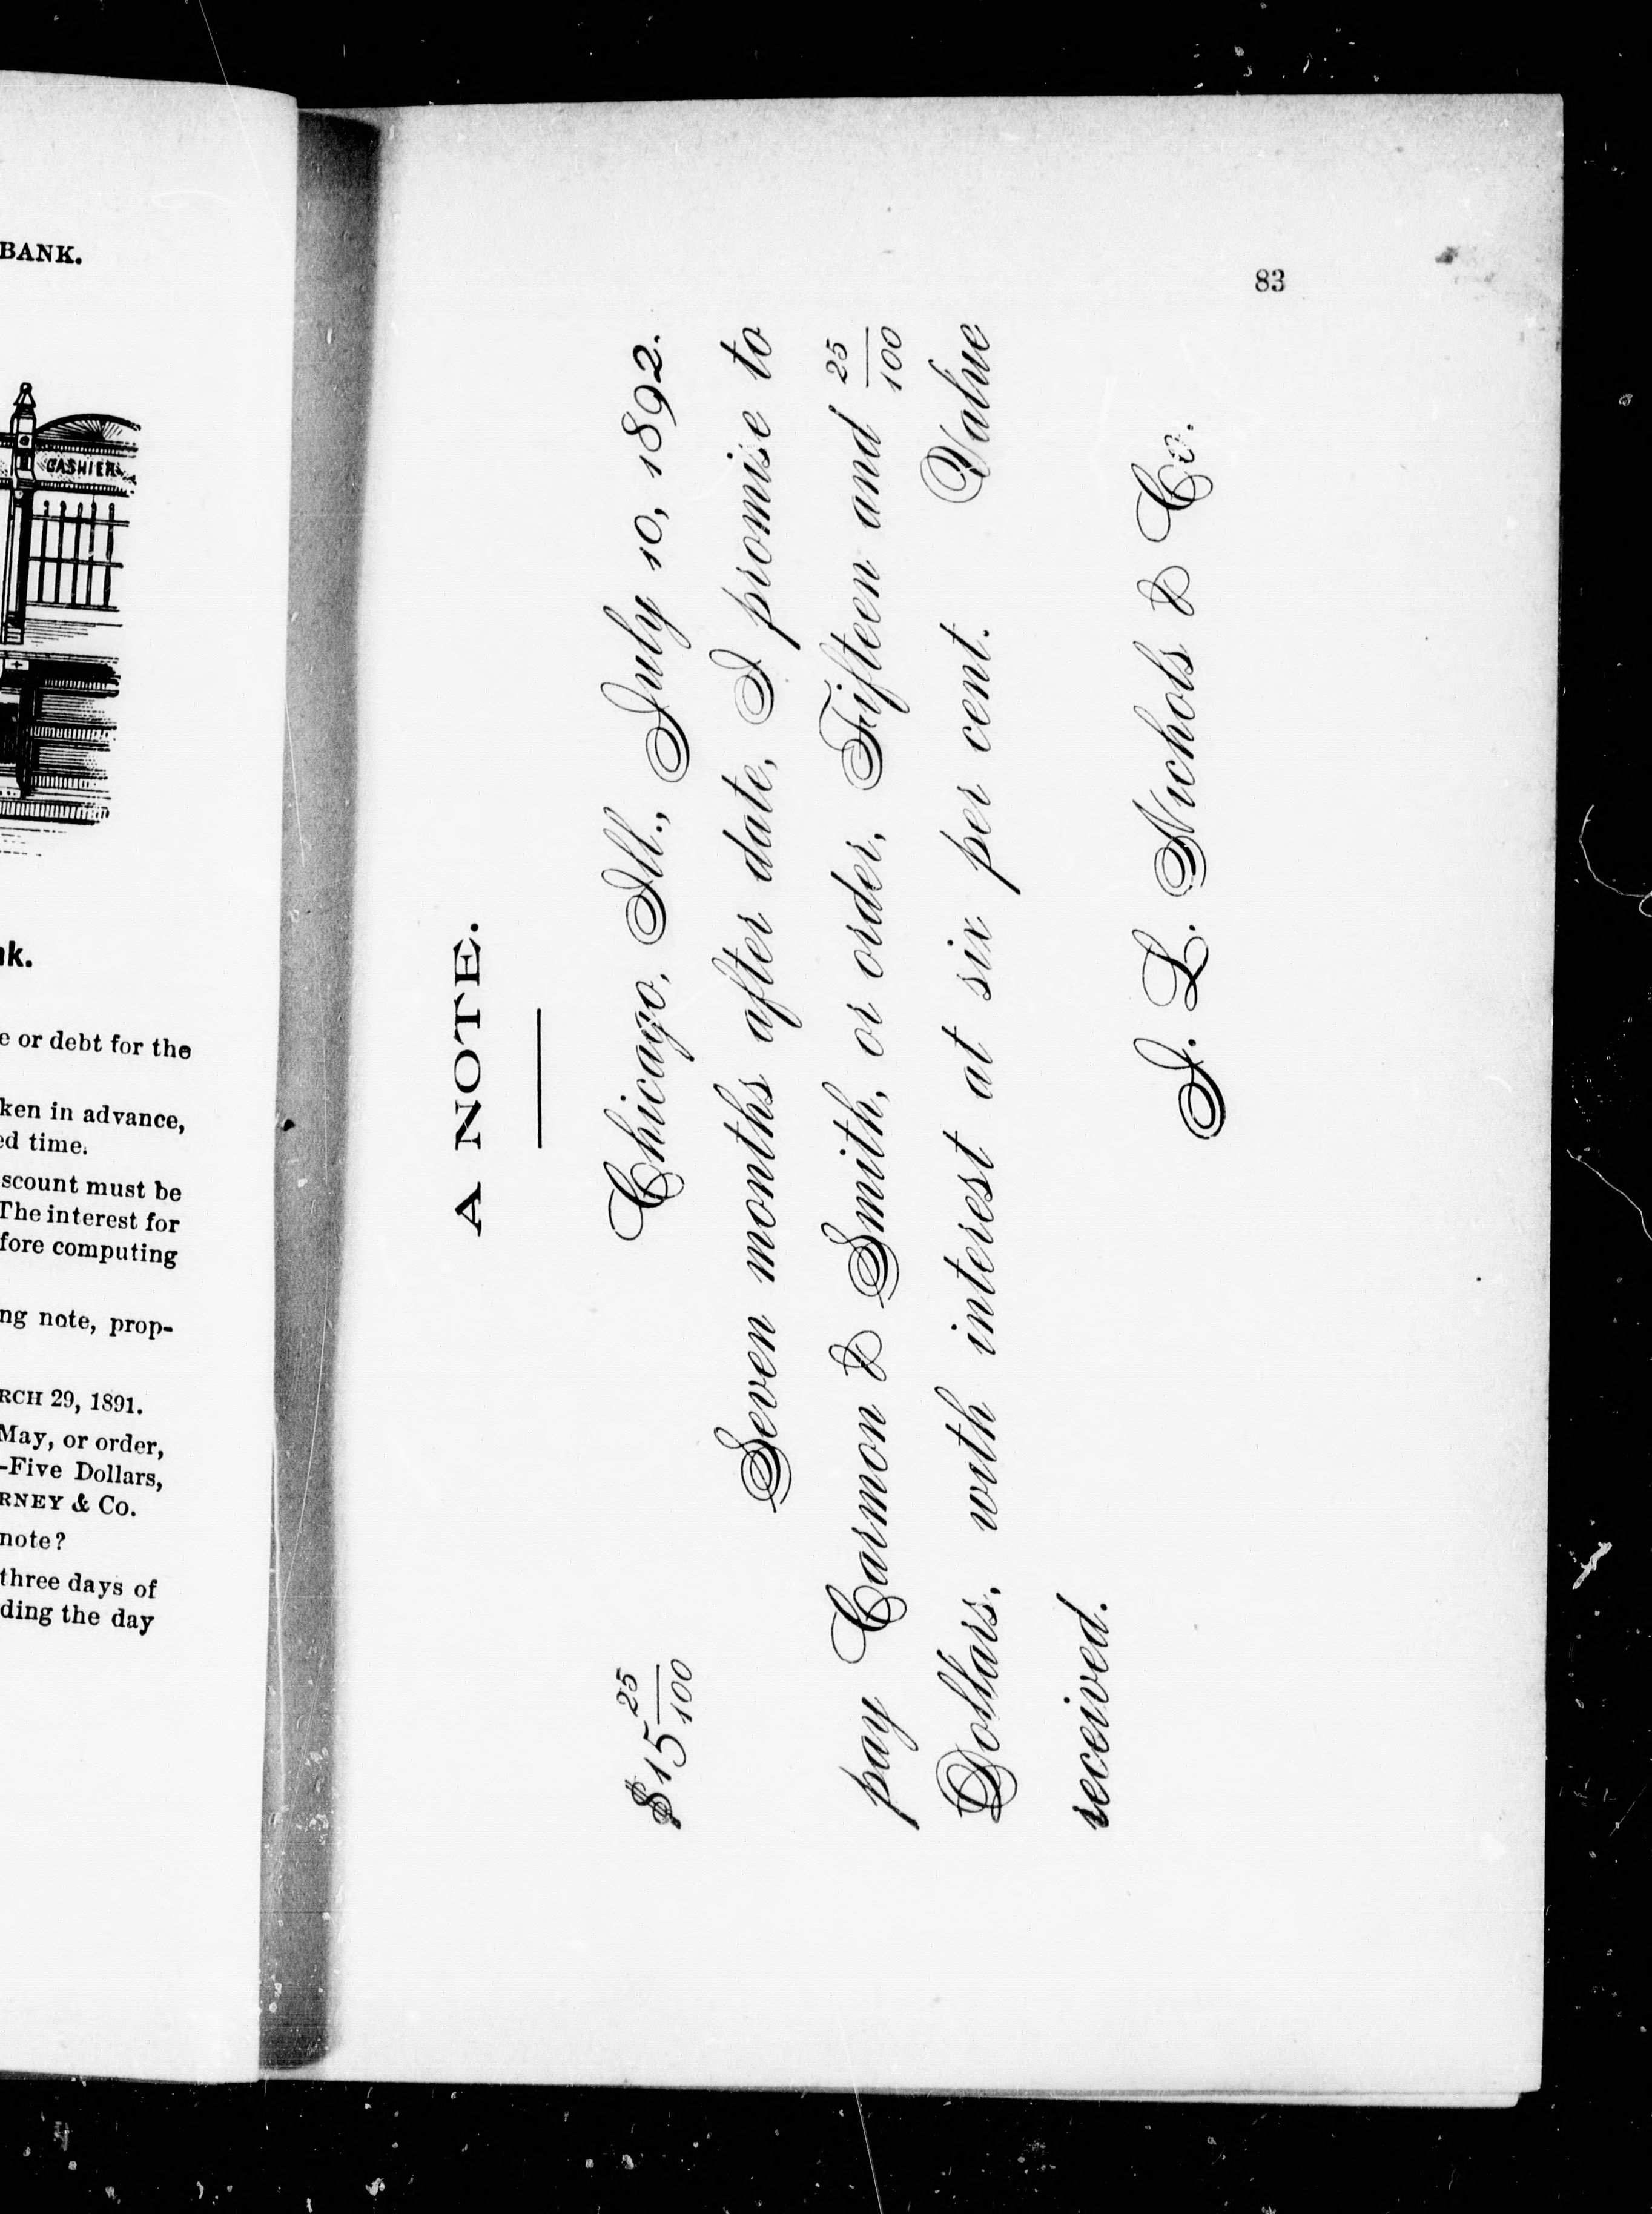 BANK.
CASHIER
nk.
e or debt for the
ken in advance,
ed time.
scount must be
The interest for
fore computing
ng note, prop-
RCH 29, 1891.
May, or order,
-Five Dollars,
RNEY & Co.
note?
three days of
ding the day
83
A NOTE.
$15 25/100 Chicago, Ill., July 10, 1892.
Seven months after date, I promise to
pay Carmon & Smith, or order, Fifteen and 25/100
Dollars, with interest at six per cent. Value
received.
J. L. Nichols & Co.